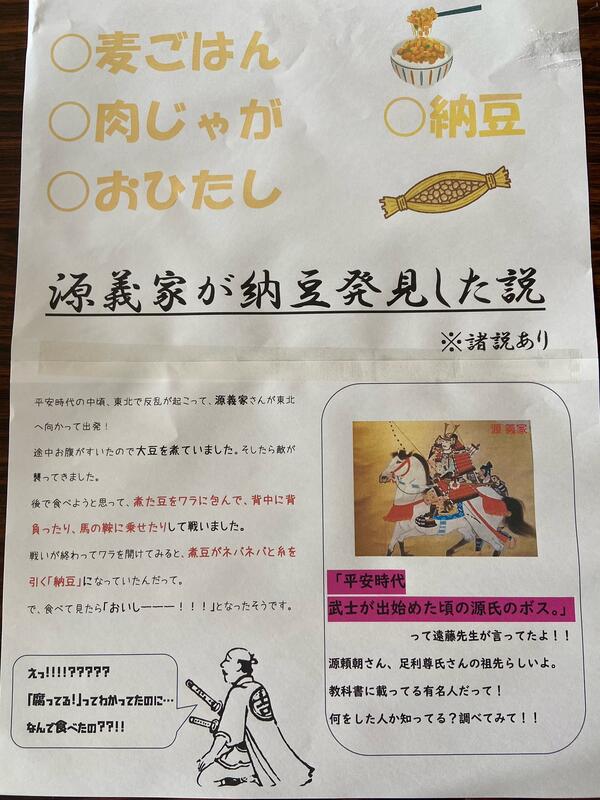 ○麦ごはん
○肉じゃが
○納豆
○おひたし
源義家が納豆発見した説
※諸説あり
平安時代の中頃、東北で反乱が起こって、源義家さんが東北
へ向かって出発！
途中お腹がすいたので大豆を煮ていました。そしたら敵が
襲ってきました。
後で食べようと思って、煮た豆をワラに包んで、背中に背
負ったり、馬の鞍に乗せたりして戦いました。
戦いが終わってワラを開けてみると、煮豆がネバネバと糸を
引く「納豆」になっていたんだって。
で、食べて見たら「おいしーーー！！！」となったそうです。
えっ!!!!?????
「腐ってる!」ってわかってたのに…
なんで食べたの??!!
源義家
「平安時代
武士が出始めた頃の源氏のボス。」
って遠藤先生が言ってたよ！！
源頼朝さん、足利尊氏さんの祖先らしいよ。
教科書に載ってる有名人だって！
何をした人か知ってる？調べてみて！！